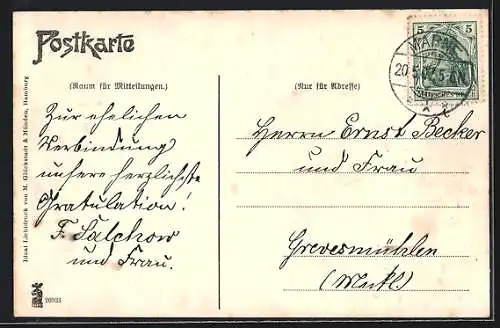 Postkarte
(Raum für Mitteilungen.)
Zur ehelichen
Verbindung
unsere herzlichste
Gratulation!
F. Salchow
und Frau.
Ideal Lichtdruck von M. Glückstadt & Münden, Hamburg
20933
5 5
20.5
5-6N
(Nur für Adresse)
Herrn Ernst Becker
und Frau
Grevesmühlen
(Meckl.)